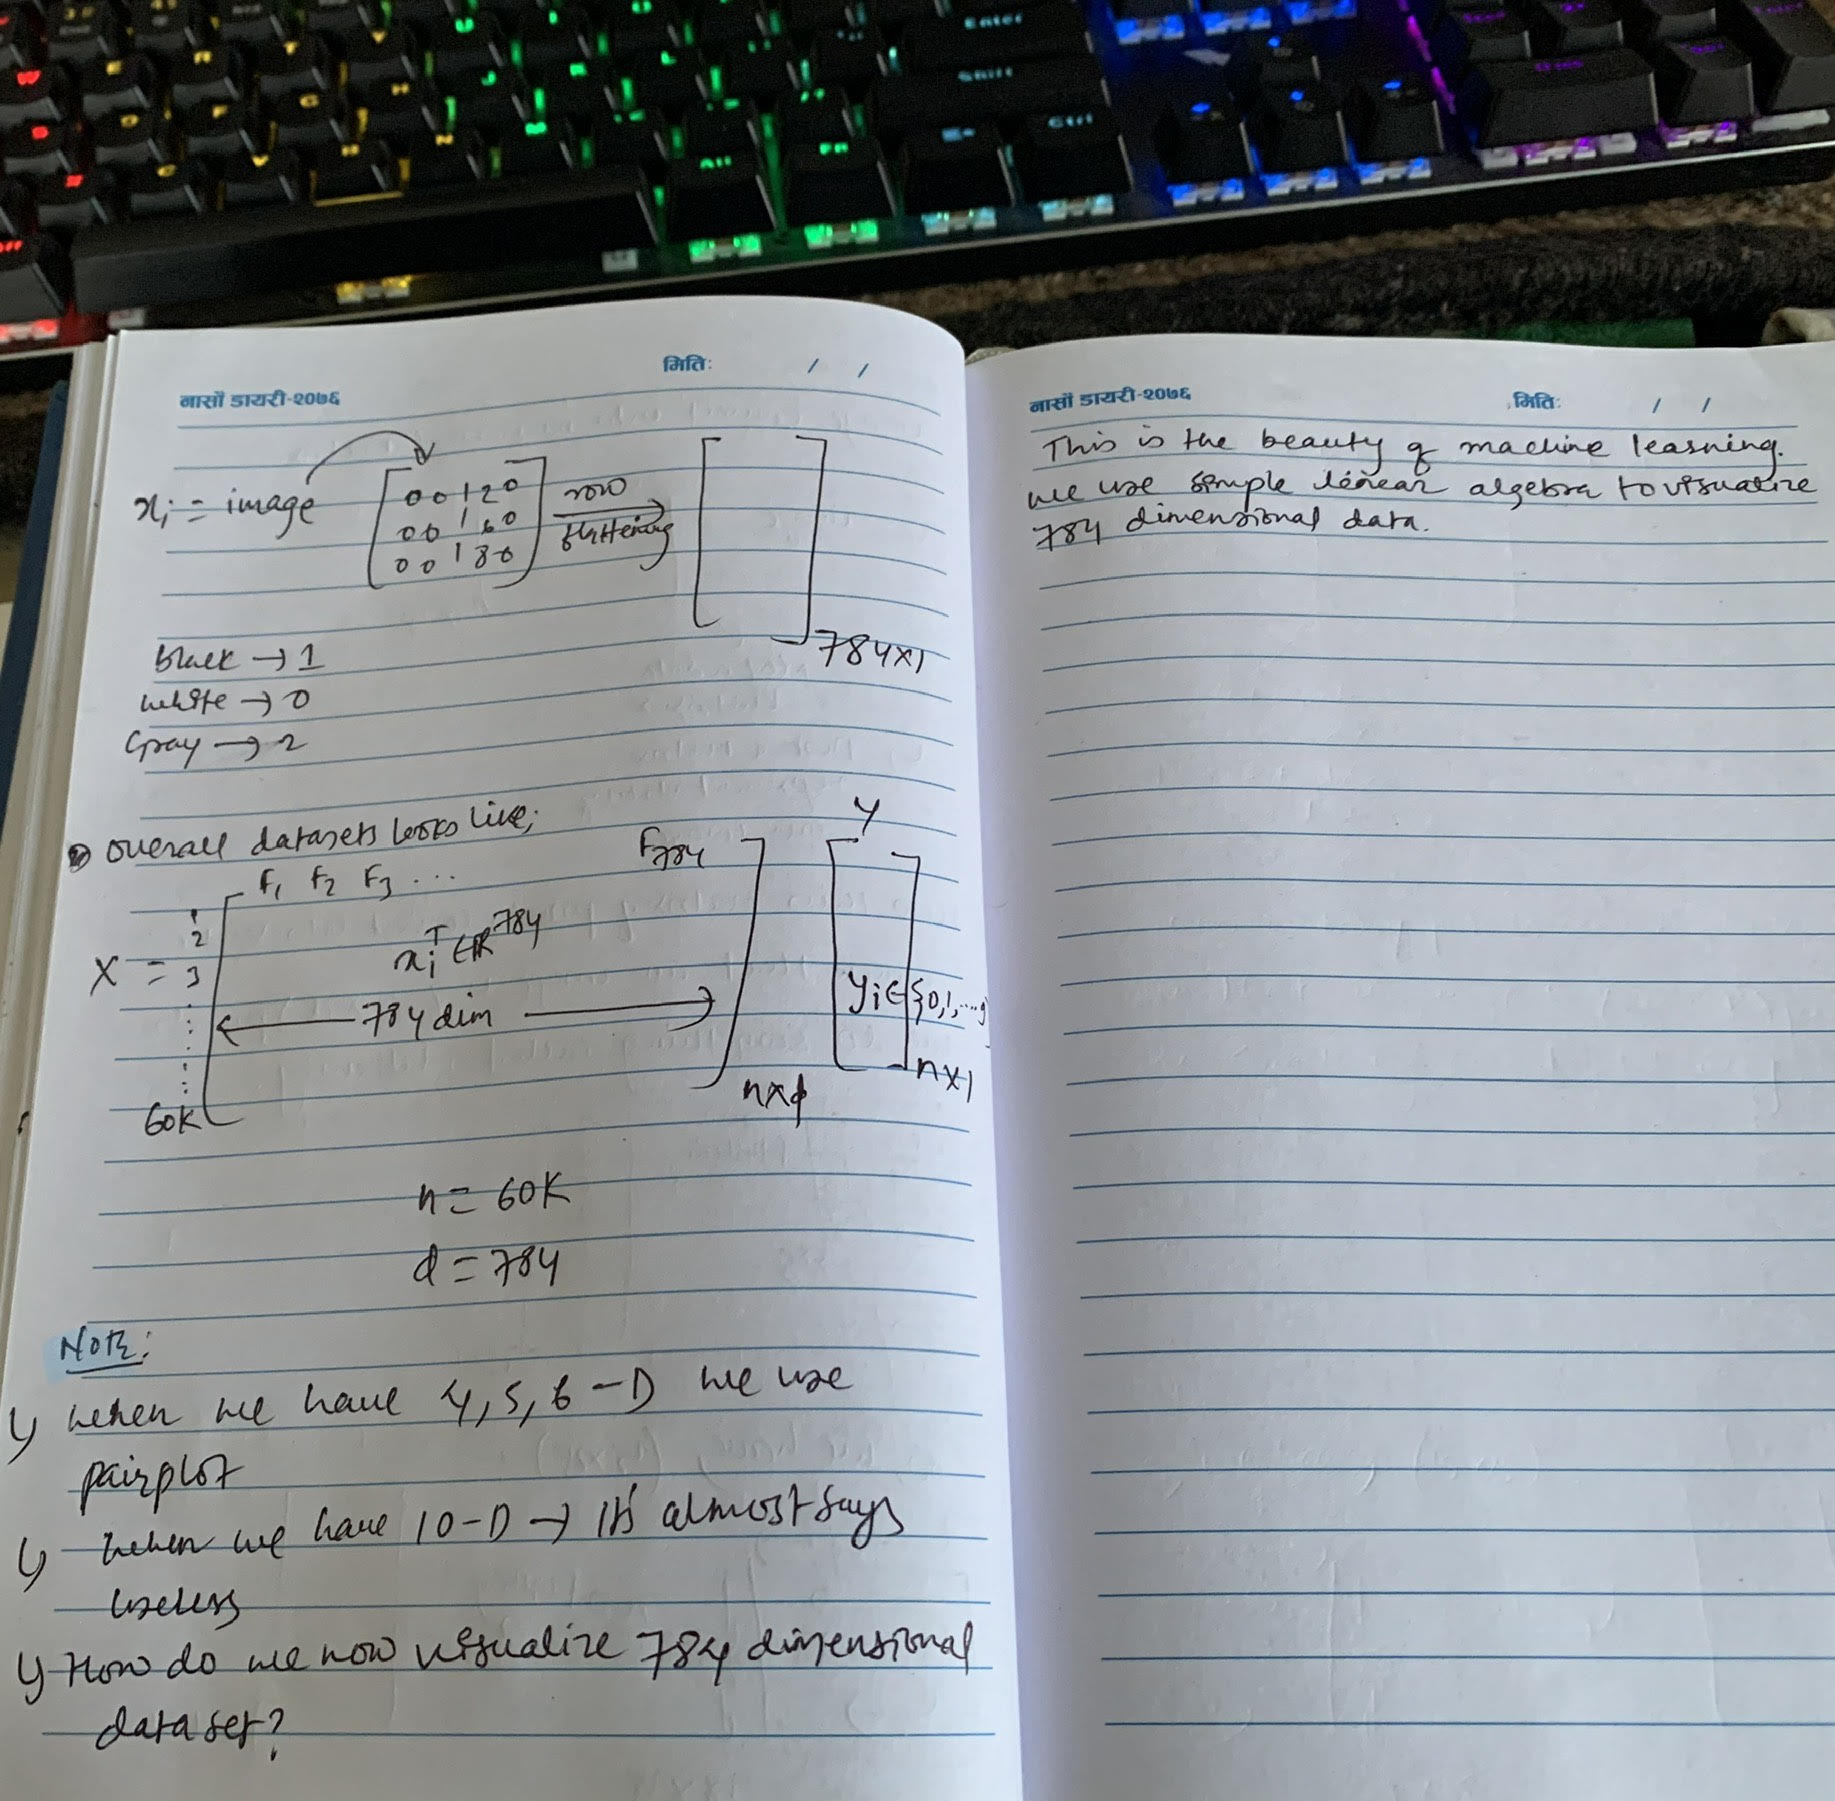 मितिः / /
नासों डायरी-२०७६
xi = image [0 0 1 2 0
0 0 1 6 0
0 0 1 8 0] row flattening [ ] 784x1
Black → 1
White → 0
Gray → 2
Overall datasets looks like;
F1 F2 F3 ... F784 Y
1
2
X = 3
xiT ∈ R784
784 dim
yi ∈ {0,1,...9
60K
nxd
nx1
n = 60K
d = 784
Note:
when we have 4, 5, 6 - D we use
pairplot
when we have 10-D → It's almost says
useless
How do we now visualize 784 dimensional
data set?
मितिः / /
नासों डायरी-२०७६
This is the beauty of machine learning.
we use simple linear algebra to visualize
784 dimensional data.
Enter
Shift
Ctrl
Alt
Fn